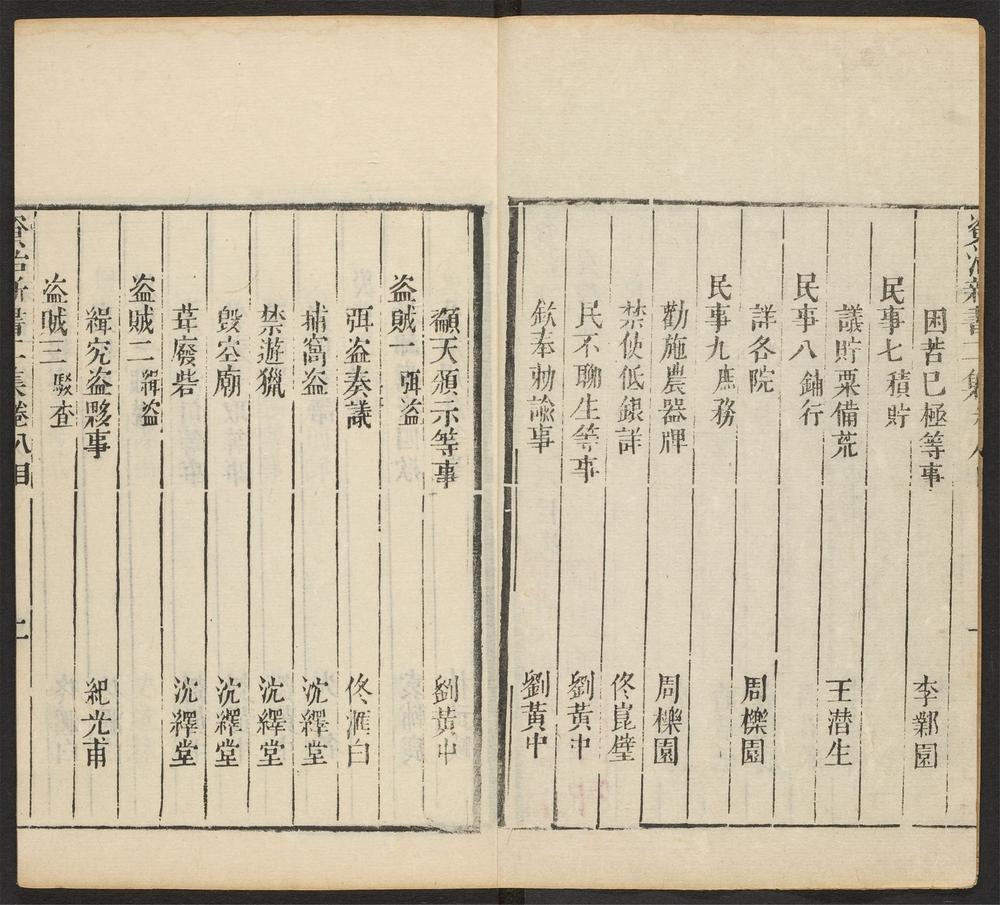 困苦已極等事 李鄴園
民事七 積貯
議貯粟備荒 王潛生
民事八 鋪行
詳各院 周櫟園
民事九 庶務
勸施農器牌 周櫟園
禁使低銀詳 佟崑璧
民不聊生等事 劉黃中
欽奉勅諭事 劉黃中
籲天頒示等事 劉黃中
盗賊一 弭盗
弭盗奏議 佟滙白
捕窩盗 沈繹堂
禁遊獵 沈繹堂
毀空廟 沈繹堂
葺廢砦 沈繹堂
盗賊二 緝盗
緝究盗夥事 紀光甫
盗賊三 駁查
資治新書二集卷八目 二